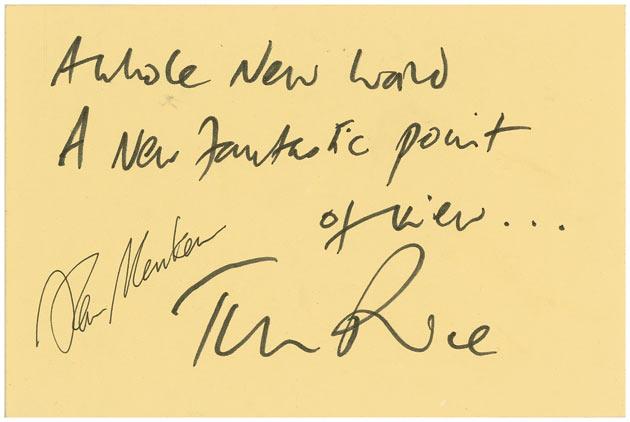 A whole New World
A New fantastic point
of view...
Alan Menken
Tim Rice